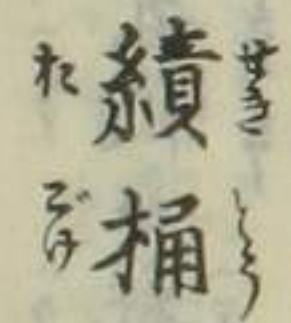 せきとう
績桶
おごけ